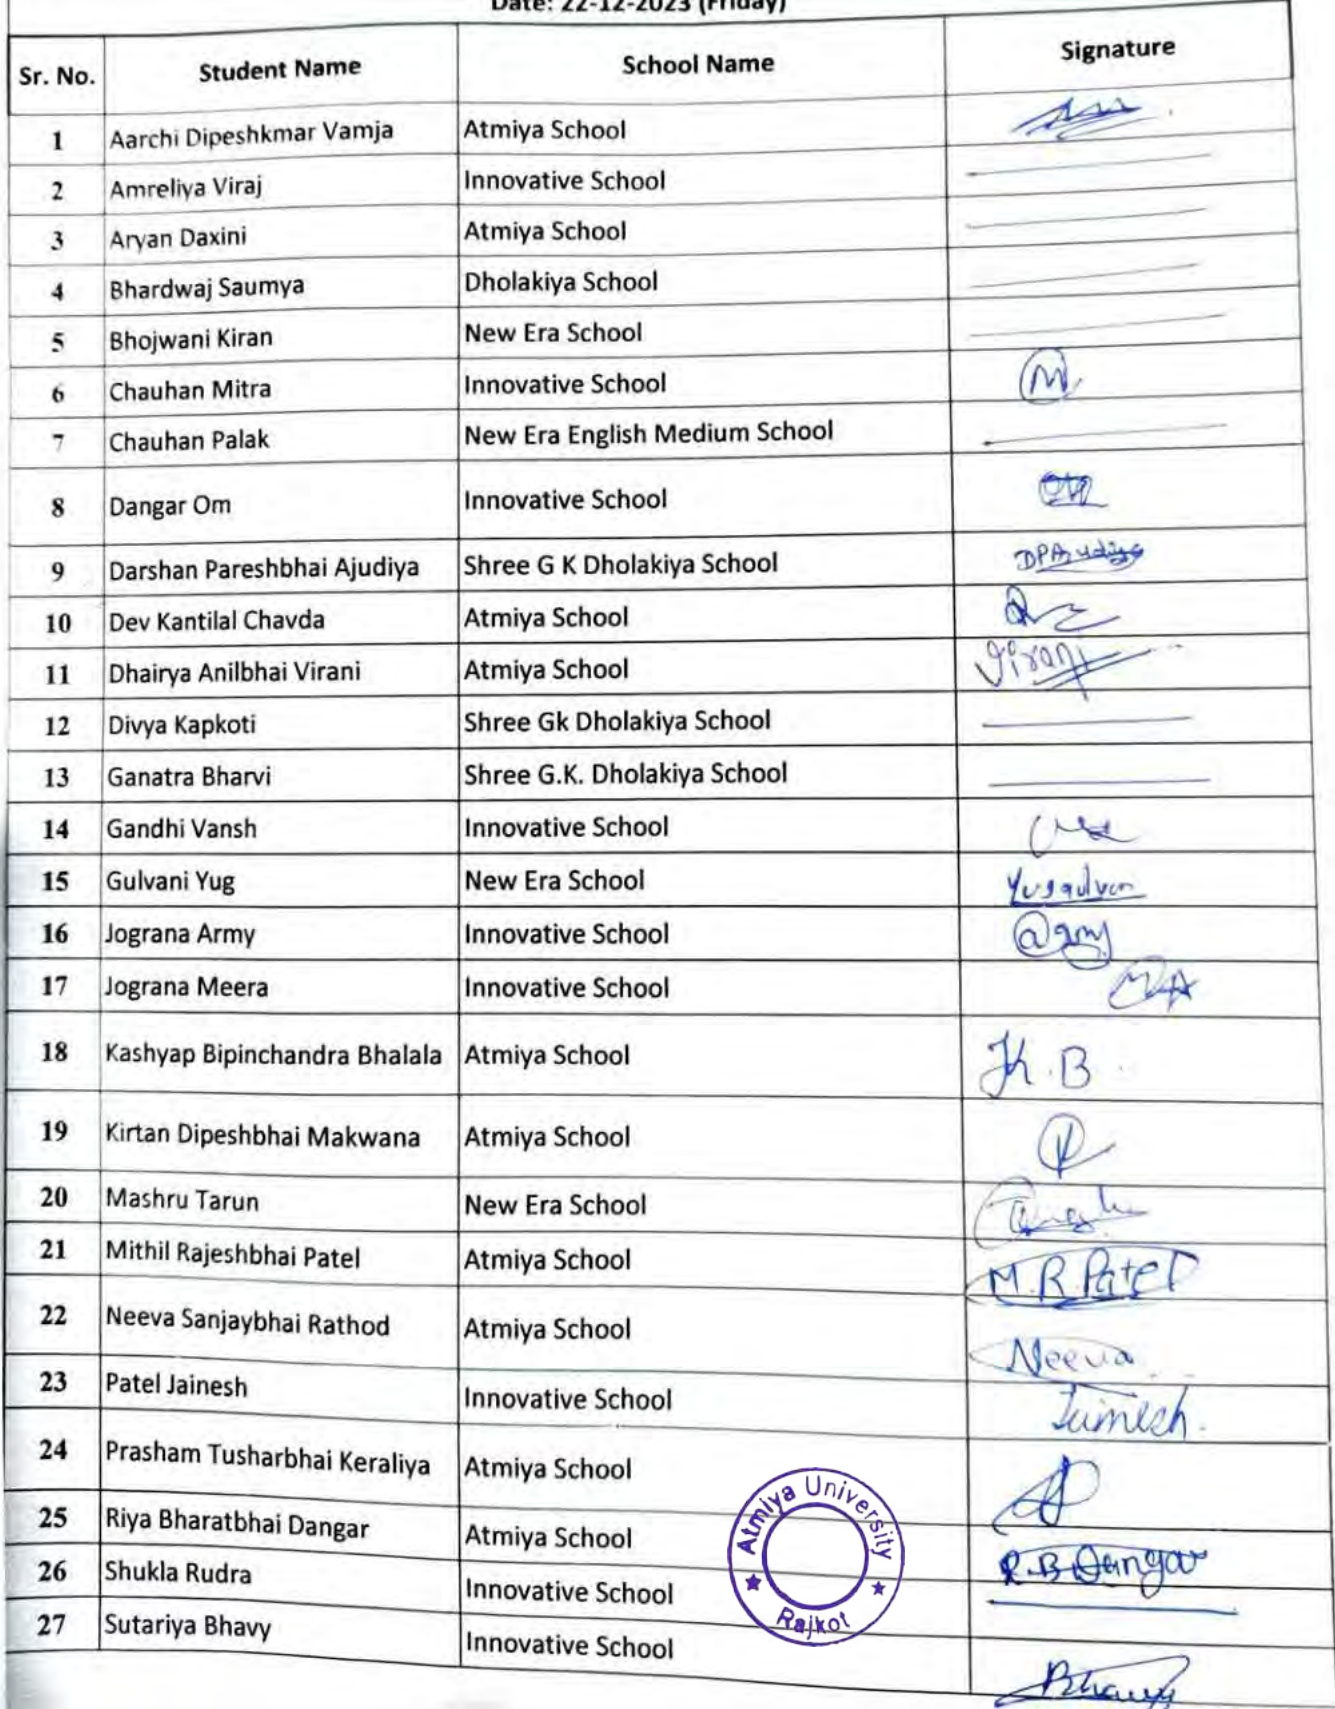 Date: 22-12-2023 (Friday)
Sr. No. Student Name School Name Signature
1 Aarchi Dipeshkmar Vamja Atmiya School
2 Amreliya Viraj Innovative School
3 Aryan Daxini Atmiya School
4 Bhardwaj Saumya Dholakiya School
5 Bhojwani Kiran New Era School
6 Chauhan Mitra Innovative School M
7 Chauhan Palak New Era English Medium School
8 Dangar Om Innovative School Om
9 Darshan Pareshbhai Ajudiya Shree G K Dholakiya School
10 Dev Kantilal Chavda Atmiya School
11 Dhairya Anilbhai Virani Atmiya School
12 Divya Kapkoti Shree Gk Dholakiya School
13 Ganatra Bharvi Shree G.K. Dholakiya School
14 Gandhi Vansh Innovative School
15 Gulvani Yug New Era School
16 Jograna Army Innovative School
17 Jograna Meera Innovative School
18 Kashyap Bipinchandra Bhalala Atmiya School K.B.
19 Kirtan Dipeshbhai Makwana Atmiya School
20 Mashru Tarun New Era School
21 Mithil Rajeshbhai Patel Atmiya School M.R.Patel
22 Neeva Sanjaybhai Rathod Atmiya School Neeva
23 Patel Jainesh Innovative School
24 Prasham Tusharbhai Keraliya Atmiya School
25 Riya Bharatbhai Dangar Atmiya School R.B.Dangar
26 Shukla Rudra Innovative School
27 Sutariya Bhavy Innovative School
Atmiya University
Rajkot